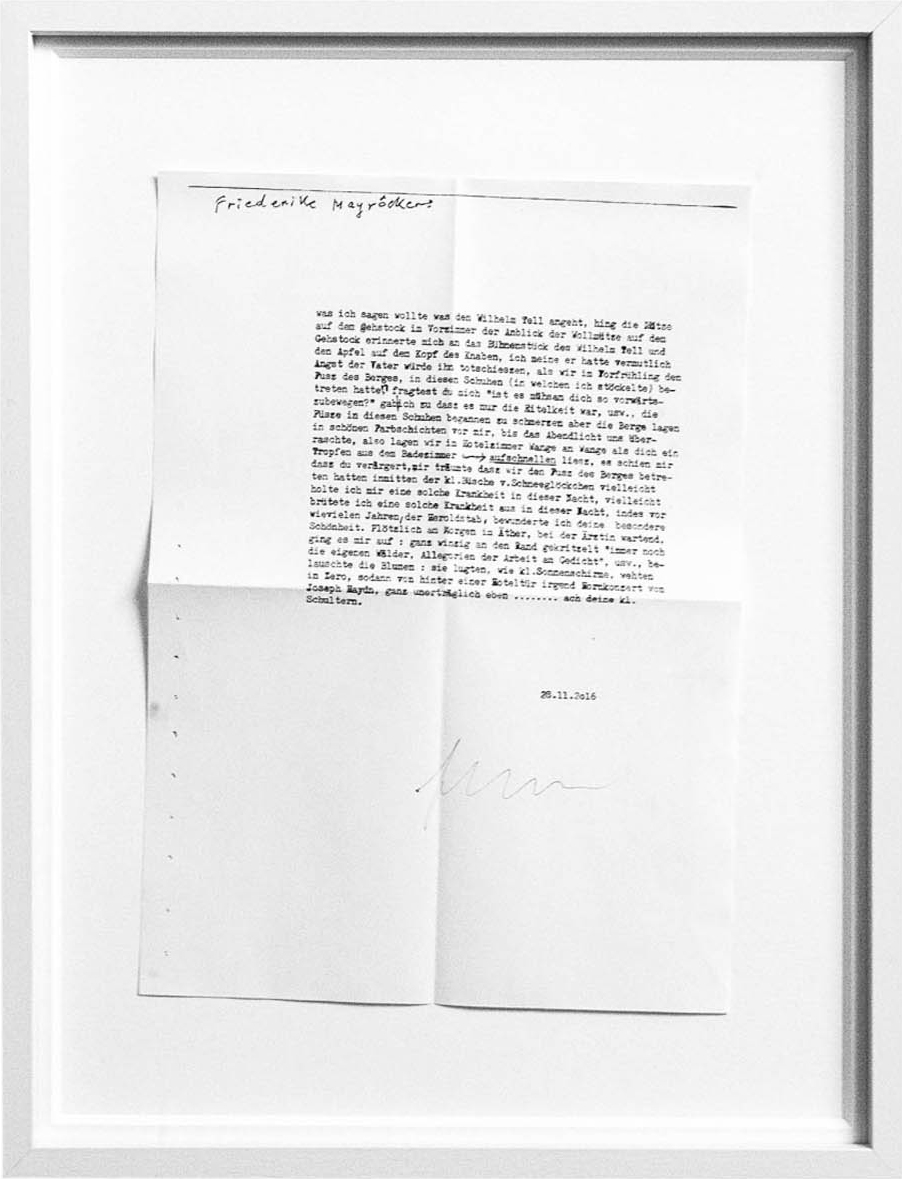 Friederike Mayröcker:
was ich sagen wollte was den Wilhelm Tell angeht, hing die Mütze
auf dem Gehstock im Vorzimmer der Anblick der Wollmütze auf dem
Gehstock erinnerte mich an das Bühnenstück des Wilhelm Tell und
den Apfel auf dem Kopf des Knaben, ich meine er hatte vermutlich
Angst der Vater würde ihn totschieszen, als wir im Vorfrühling den
Fusz des Berges, in diesen Schuhen (in welchen ich stöckelte) be-
treten hatten fragtest du mich "ist es mühsam dich so vorwärts-
zubewegen?" gab ich zu dasz es nur die Eitelkeit war, usw., die
Füsze in diesen Schuhen begannen zu schmerzen aber die Berge lagen
in schönen Farbschichten vor mir, bis das Abendlicht uns über-
raschte, also lagen wir im Hotelzimmer Wange an Wange als dich ein
Tropfen aus dem Badezimmer aufschnellen liesz, es schien mir
dasz du verärgert, mir träumte dasz wir den Fusz des Berges betre-
ten hatten inmitten der kl.Büsche v.Schneeglöckchen vielleicht
holte ich mir eine solche Krankheit in dieser Nacht, vielleicht
brütete ich eine solche Krankheit aus in dieser Nacht, indes vor
wievielen Jahren, der Heroldstab, bewunderte ich deine besondere
Schönheit. Plötzlich am Morgen im Äther, bei der Ärztin wartend,
ging es mir auf : ganz winzig an den Rand gekritzelt "immer noch
die eigenen Wälder, Allegorien der Arbeit am Gedicht", usw., be-
lauschte die Blumen : sie lugten, wie kl.Sonnenschirme, wehten
in Zero, sodann von hinter einer Hoteltür irgend Hornkonzert von
Joseph Haydn, ganz unerträglich eben ........ ach deine kl.
Schultern.
28.11.2o16